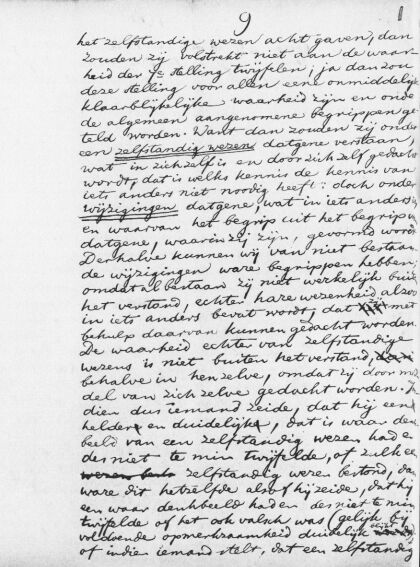 9
het zelfstandige wezen acht gaven, dan
zouden zij volstrekt niet aan de waar-
heid der 7e stelling twijfelen; ja dan zou
deze stelling voor allen eene onmiddelijk
klaarblijkelijke waarheid zijn en onde
de algemeen aangenomene begrippen ge-
teld worden. Want dan zouden zij onde
een zelfstandig wezen datgene verstaan,
wat in zichzelf is en door zichzelf gedacht
wordt, dat is welks kennis de kennis van
iets anders niet noodig heeft: doch onde
wijzigingen datgene, wat in iets anders i
en waarvan het begrip uit het begrip v
datgene, waarin zij zijn, gevormd wordt
Derhalve kunnen wij van niet bestaan
de wijzigingen ware begrippen hebben;
omdat al bestaan zij niet werkelijk buit
het verstand, echter hare wezenheid alzoo
in iets anders bevat wordt, dat zij met
behulp daarvan kunnen gedacht worden
De waarheid echter van zelfstandige
wezens is niet buiten het verstand, dan
behalve in hen zelve, omdat zij door mid
del van zich zelve gedacht worden. In
dien dus iemand zeide, dat hij een
helder en duidelijk, dat is waar den
beeld van een zelfstandig wezen had e
des niet te min twijfelde, of zulk ee
zelfstandig wezen bestond, dan
ware dit hetzelfde alsof hij zeide, dat hij
een waar denkbeeld had en des niet te min
twijfelde of het ook valsch was (gelijk bij
voldoende opmerkzaamheid duidelijk
of indien iemand stelt, dat een zelfstandig